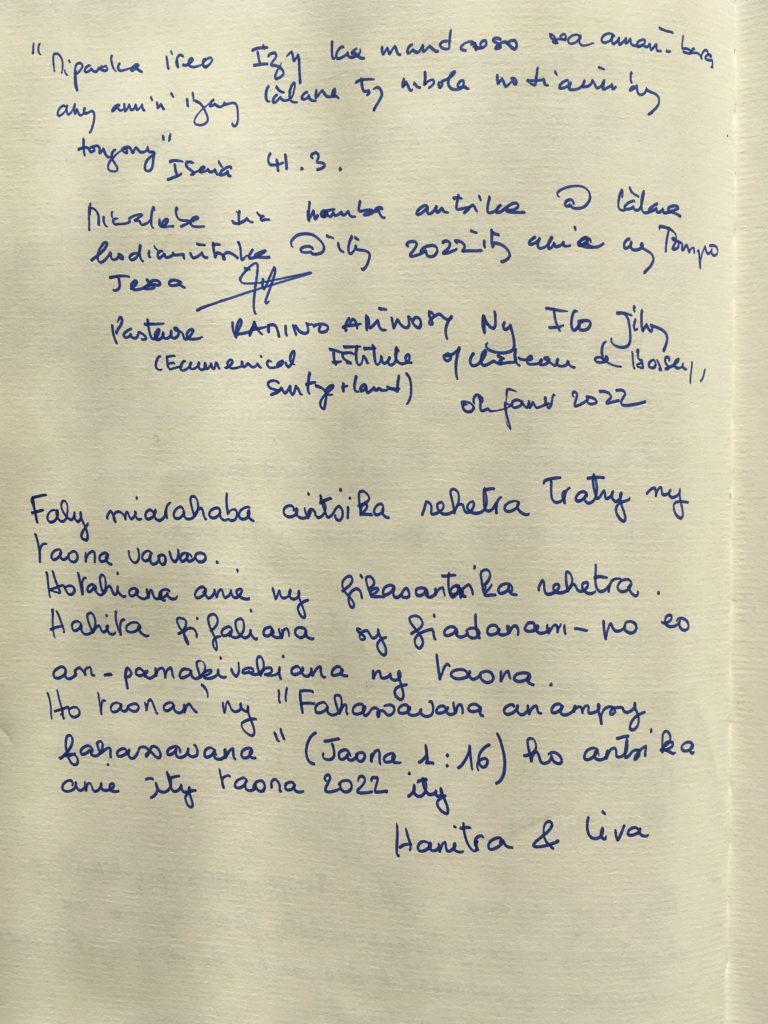 " ireo Izy ka mandroso soa aman-tsara
any amin' izay làlana tsy mbola nodiavin'ny
tongony" Isaia 41.3.
antsika @ làlana
hodiavintsika @ ity 2022 ity anie ny Tompo
Jesoa
Pasteur Ny Ilo Jihy
(Ecumenical Istitute of château de Bossey,
Switzerland)
02 janv 2022
Faly miarahaba antsika rehetra tratry ny
taona vaovao.
Hotahiana anie ny fikasantsika rehetra.
Hahita fifaliana sy fiadanam-po eo
am-pamakivakiana ny taona.
Ho taonan' ny "Fahasoavana anampy
fahasoavana" (Jaona 1:16) ho antsika
anie ity taona 2022 ity
Hanitra & Liva